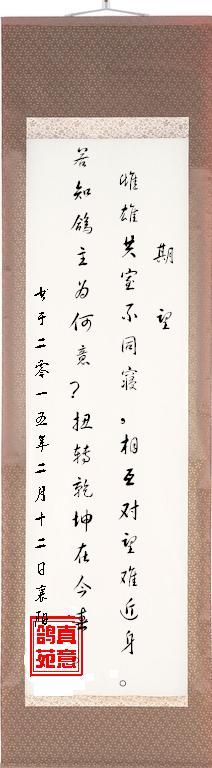 期望
雌雄共室不同寝，相互对望难近身。
若知鸽主为何意？扭转乾坤在今春
书于二零一五年二月十二日襄阳
真意鸽苑